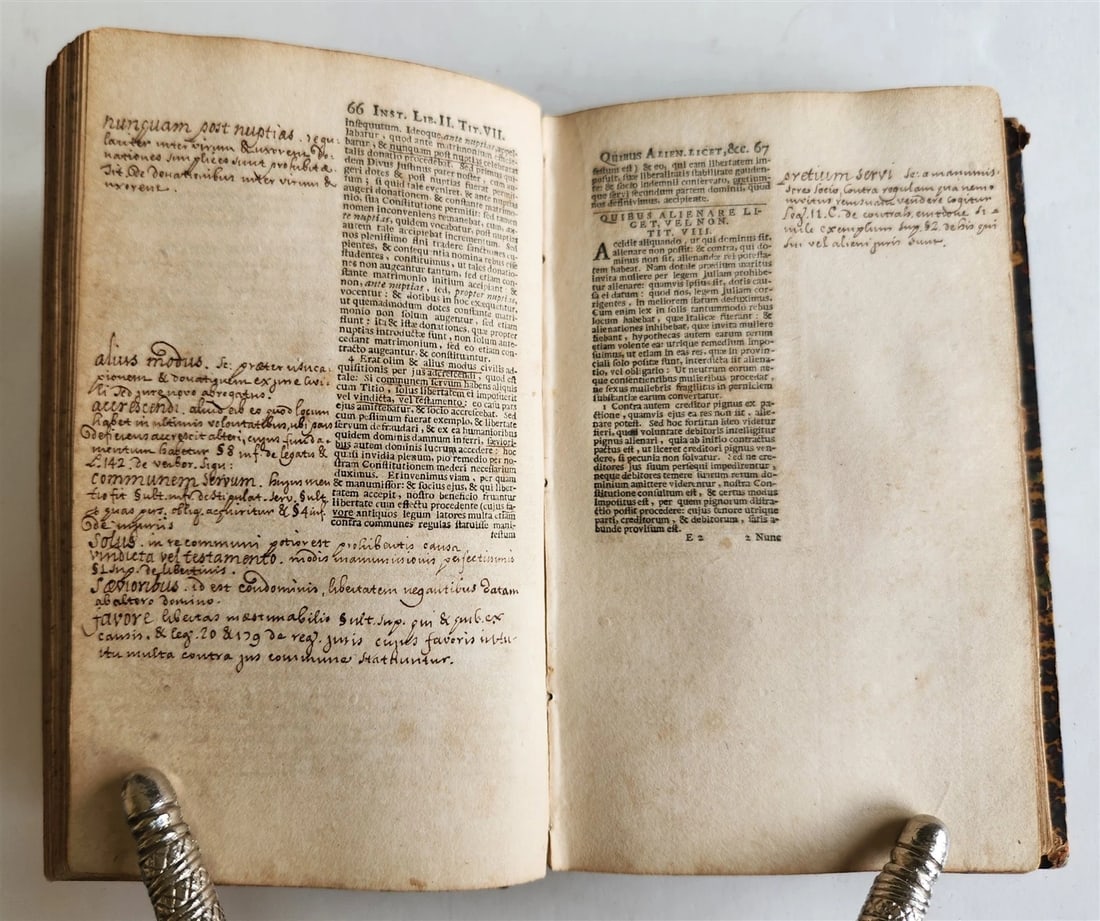 66 INST. LIB. II. TIT. VII.
insequutum. Ideoque ante nuptias appel-
labatur, quod ante matrimonium efficie-
batur, & nunquam post nuptias celebratas
talis donatio procedebat. Sed primus qui-
dem Divus Justinus pater noster, cum au-
geri dotes & post nuptias fuerat permis-
sum; si quid tale eveniret, & ante nuptias
augeri donationem, & constante matrimo-
nio, sua Constitutione permisit: sed tamen
nomen inconveniens remanebat, cum an-
te nuptias, quidem vocabatur, post nuptias
autem tale accipiebat incrementum. Sed
nos plenissimo fini tradere sanctiones cu-
pientes, & consequentia nomina rebus esse
studentes, constituimus, ut tales donatio-
nes non augeantur tantum, sed etiam con-
stante matrimonio initium accipiant: &
non, ante nuptias, sed, propter nuptias,
vocentur: & dotibus in hoc exæquentur,
ut quemadmodum dotes constante matri-
monio non solum augentur, sed etiam
fiunt: ita & istæ donationes, quæ propter
nuptias introductæ sunt, non solum ante-
cedant matrimonium, sed eo etiam con-
tracto augeantur, & constituantur.
4 Erat olim & alius modus civilis ad-
quisitionis per jus adcrescendi, quod est
tale: Si communem servum habens aliquis
cum Titio, solus libertatem ei imposuerit
vel vindicta, vel testamento: eo casu pars
ejus amittebatur, & socio accrescebat. Sed
cum pessimum fuerat exemplo, & libertate
servum defraudari, & ex ea humanioribus
quidem dominis damnum inferri, sævior-
ibus autem dominis lucrum accedere: hoc
quasi invidia plenum, pio remedio per no-
stram Constitutionem mederi necessarium
duximus. Et invenimus viam, per quam
& manumissor: & socius ejus, & qui liber-
tatem accepit, nostro beneficio fruantur
libertate cum effectu procedente (cujus fa-
vore antiquos legum latores multa etiam
contra communes regulas statuisse mani-
festum
nunquam post nuptias. regu-
lariter inter virum & uxorem do-
nationes simplices sunt prohibitæ
Tit. de donationibus inter virum &
uxorem.
alius modus. sc: præter usuca-
pionem & donationem ex jure civi-
li sed jure novo abrogatus.
accrescendi. aliud ab eo quod locum
habet in ultimis voluntatibus, ubi pars
deficiens accrescit alteri, cujus funda-
mentum habetur §8 inf. de legatis &
L. 142. de verbor. sign:
communem servum. hujus men
tio fit § ult. inf. de stipulat. serv. § ult.
quas pers. obliq. acquiritur & §4 inf.
de injuriis
Solus. in re communi potior est prohibentis causa
vindicta vel testamento. modis manumissionis perfectissimis
§1 sup. de libertinis.
Sævioribus. id est condominis, libertatem negantibus datam
ab altero domino.
favore libertas inæstimabilis § ult. sup. qui & quib. ex
causis. & leg. 20 & 179 de reg. juris cujus favoris intu-
itu multa contra jus commune statuuntur.
QUIBUS ALIEN. LICET, &c. 67
festum est) & eo, qui eam libertatem im-
posuit, suæ liberalitatis stabilitate gauden-
te: & socio indemni conservato, pretium-
que servi secundum partem dominii, quod
nos definivimus, accipiente.
QUIBUS ALIENARE LI-
CET, VEL NON.
TIT. VIII.
Accidit aliquando, ut qui dominus sit,
alienare non possit: & contra, qui do-
minus non sit, alienandæ rei potesta-
tem habeat. Nam dotale prædium maritus
invita muliere per legem Juliam prohibe-
tur alienare: quamvis ipsius sit, dotis cau-
sa ei datum: quod nos, legem Juliam cor-
rigentes, in meliorem statum deduximus.
Cum enim lex in solis tantummodo rebus
locum habebat, quæ Italicæ fuerant: &
alienationes inhibebat, quæ invita muliere
fiebant, hypothecas autem earum rerum
etiam volente ea: utrique remedium impo-
suimus, ut etiam in eas res, quæ in provin-
ciali solo positæ sunt, interdicta sit aliena-
tio, vel obligatio: Ut neutrum eorum ne-
que consentientibus mulieribus procedat,
ne sexus muliebris fragilitas in perniciem
substantiæ earum convertatur.
1 Contra autem creditor pignus ex pa-
ctione, quamvis ejus ea res non sit, alie-
nare potest. Sed hoc forsitan ideo videtur
fieri, quod voluntate debitoris intelligitur
pignus alienari, quia ab initio contractus
pactus est, ut liceret creditori pignus ven-
dere, si pecunia non solvatur. Sed ne cre-
ditores jus suum persequi impedirentur,
neque debitores temere suarum rerum do-
minium amittere viderentur, nostra Con-
stitutione consultum est, & certus modus
impositus est, per quem pignorum distra-
ctio possit procedere: cujus tenore utrique
parti, creditorum, & debitorum, satis a-
bunde provisum est.
E 2 2 Nunc
pretium servi sc: a manumis-
sore socio, contra regulam qua nemo
invitus rem suam vendere cogitur
Leg. 11. C. de contrah. emtione si-
mile exemplum sup. §2. de his qui
sui vel alieni juris sunt.